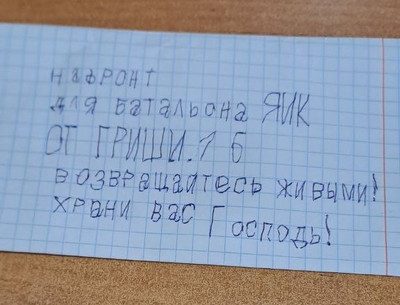 НАФРОНТ
ДЛЯ БАТАЛЬОНА ЯИК
ОТ ГРИШИ. 1 Б
ВОЗВРАЩАЙТЕСЬ ЖИВЫМИ!
ХРАНИ ВАС ГОСПОДЬ!